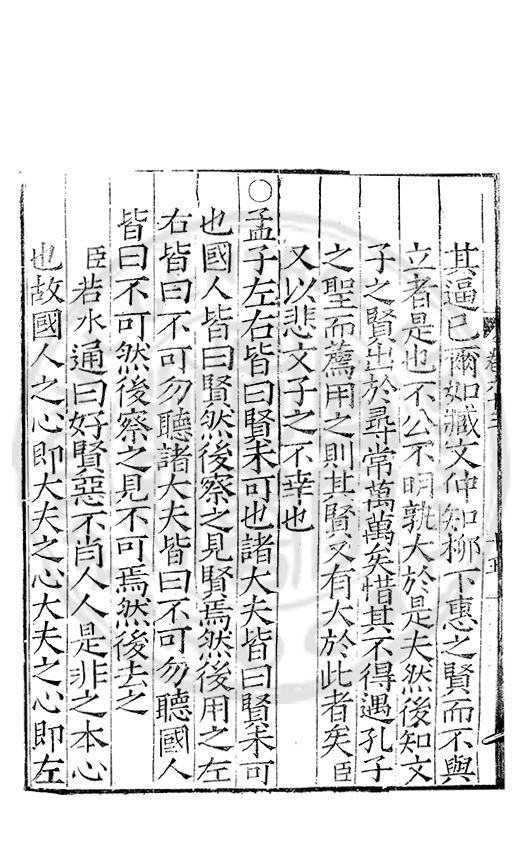 其逼已爾如臧文仲知柳下惠之賢而不與
立者是也不公不明孰大於是夫然後知文
子之賢出於尋常萬萬矣惜其不得遇孔子
之聖而薦用之則其賢又有大於此者矣臣
又以悲文子之不幸也
○孟子左右皆曰賢未可也諸大夫皆曰賢未可
也國人皆曰賢然後察之見賢焉然後用之左
右皆曰不可勿聽諸大夫皆曰不可勿聽國人
皆曰不可然後察之見不可焉然後去之
臣若水通曰好賢惡不肖人人是非之本心
也故國人之心即大夫之心大夫之心即左